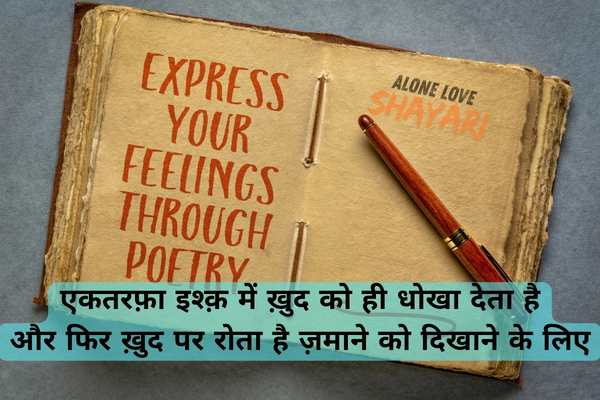 EXPRESS
YOUR
FEELINGS
THROUGH
POETRY
ALONE LOVE
SHAYARI
एकतरफ़ा इश्क़ में ख़ुद को ही धोखा देता है
और फिर ख़ुद पर रोता है ज़माने को दिखाने के लिए